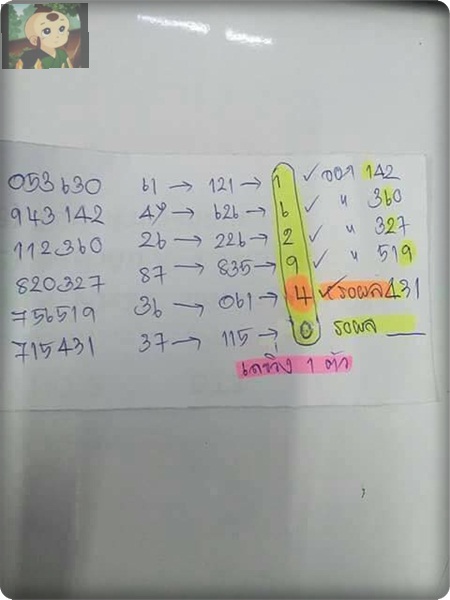 053630 61 → 121 → 1 ✓ ออก 142
943142 49 → 626 → 6 ✓ " 360
112360 26 → 226 → 2 ✓ " 327
820327 87 → 835 → 9 ✓ " 519
756519 36 → 061 → 4 รอผล 431
715431 37 → 115 → 0 รอผล __
เลขวิ่ง 1 ตัว